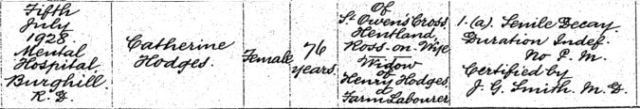 Fifth
July
1928
Mental
Hospital
Burghill
R. D.
Catherine
Hodges.
Female
76
years.
Of
St Owen's Cross,
Hentland,
Ross-on-Wye
Widow
of
Henry Hodges
a
Farm Labourer
1. (a). Senile Decay
Duration Indef.
No P. M.
Certified by
J. G. Smith. M. D.